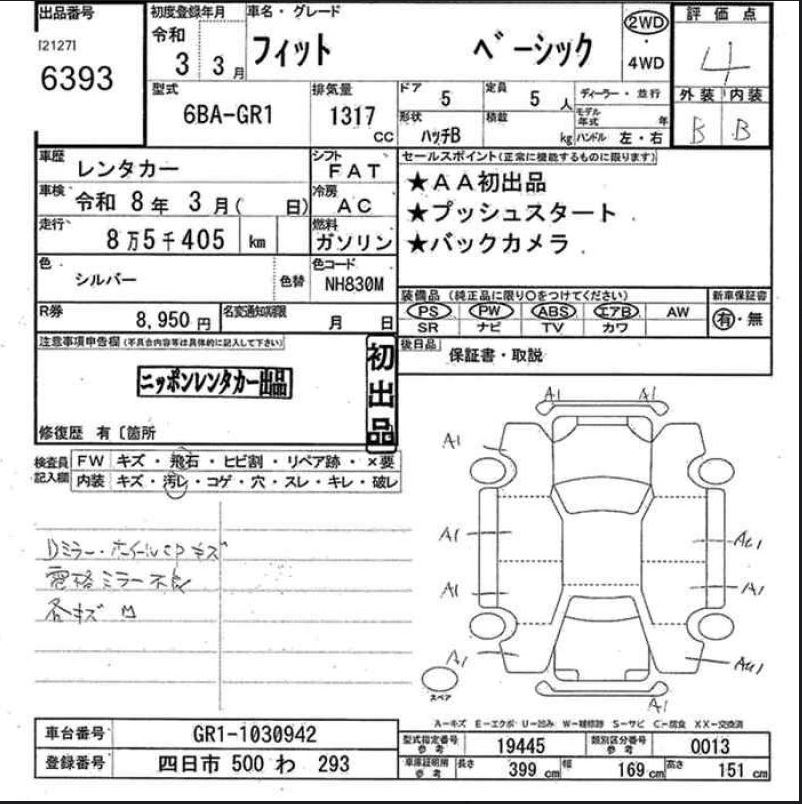 出品番号
[2127]
6393
初度登録年月
令和
3 3月
車名・グレード
フィット ベーシック
2WD
・
4WD
評価点
4
外装 内装
B B
型式
6BA-GR1
排気量
1317
CC
ドア 5
定員 5 人
ディーラー・並行
モデル年式 年
形状 ハッチB
積載 kg
ハンドル 左・右
車歴 レンタカー
シフト FAT
車検 令和 8年 3月( 日)
冷房 AC
走行 8万5千405 km
燃料 ガソリン
色 シルバー
色替
色コード NH830M
セールスポイント(正常に機能するものに限ります)
★AA初出品
★プッシュスタート
★バックカメラ
R券 8,950 円
名変通知期限 月 日
装備品 (純正品に限り○をつけてください)
PS PW ABS エアB AW
SR ナビ TV カワ
新車保証書
有・無
後日品 保証書・取説
注意事項申告欄 (不具合内容等は具体的に記入して下さい)
ニッポンレンタカー出品
初出品
修復歴 有〔箇所
検査員記入欄
FW キズ・飛石・ヒビ割・リペア跡・×要
内装 キズ・汚レ・コゲ・穴・スレ・キレ・破レ
Dミラー・ホイールCPキズ
電格ミラー不良
各キズ凹
A1 A1
A1
A1 AU1
A1 A1
A1 AU1
A1
スペア
A-キズ E-エクボ U-凹み W-補修跡 S-サビ C-腐食 XX-交換済
車台番号 GR1-1030942
登録番号 四日市 500 わ 293
型式指定番号参考 19445
類別区分番号参考 0013
車庫証明用参考
長さ 399 cm
幅 169 cm
高さ 151 cm